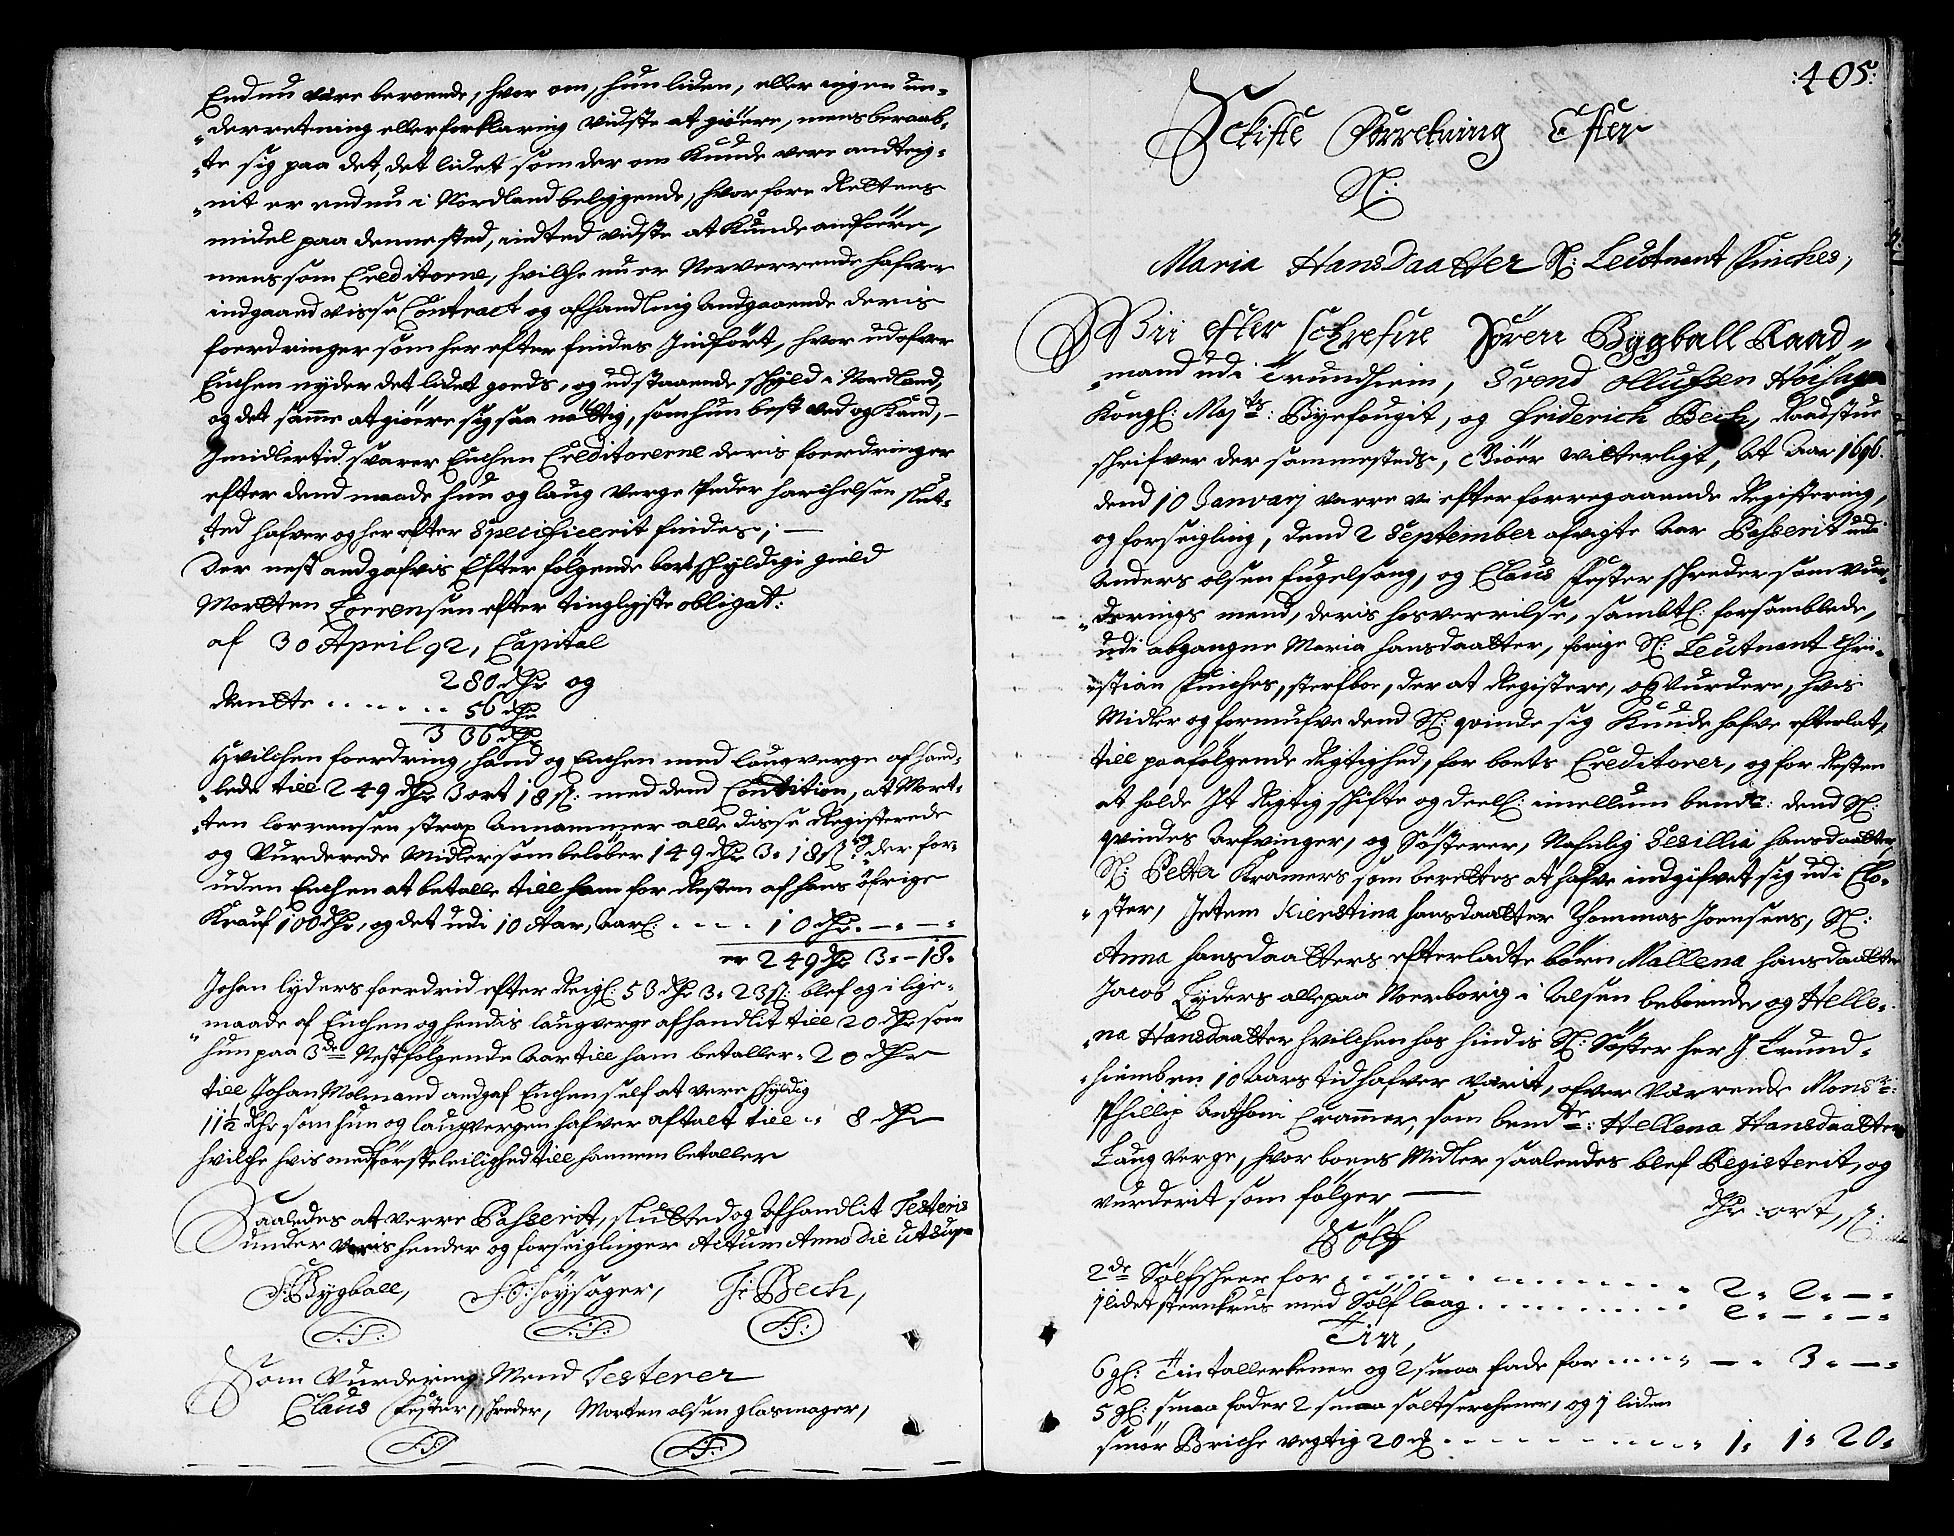 Endnu være beroende, hvor om, hun liden, eller ingen un-
derretning eller forklaring vidste at giöre, mens beraab-
te sig paa det, det lidet som der om Kunde vere andteg-
nit er endnu i Nordland beliggende, hvorfore Rettens
midel paa denne sted, intted vidste at Kunde anföre,
mens som Creditorene, hvilche nu er Nerverrende hafver
indgaaed visse Contract og afhandling Andgaaende deris
foerdringer som her efter findes Indfört, hvor udofver
Enchen nyder det lidet goeds, og udstaaende schyld i Nordland,
og det samme at giöre sig saa nöttig, som hun best ved og Kand,
Imidlertid svarer Enchen Creditorerne deris foerdringer
efter dend maade hun og laug verge Peder harchelsen slut-
ted hafver og her efter Specificerit findes;
Der nest andgafvis Efter fölgende bortschyldige gield
Morten Lorrensen efter tinglyste obligat:
af 30 April 92, Capital
280 dhr og
Rentte . . . . . . 56 dhr
336 dhr
Hvilchen foerdring, hand og Enchen med laugverge afhand-
lede till 249 dhr 3 ort 18 sl: med dend Condition, at Mort-
ten lorrensen strax Annammer alle disse Registerede
og Vurderede Midler som belöber 149 dhr 3. 18 sl og der for-
uden Enchen at betalle till ham for Resten af hans öfrige
Krauf 100 dhr, og det udi 10 Aar, aarl: . . . . 10 dhr. — . — .
er 249 dhr 3. – 18.
Johan lyders foerdrid efter Regl: 53 dhr 3. 23 sl: blef og i lige-
maade af Enchen og hendis laugverge afhandlit till 20 dhr som
hun paa 3de Nestfölgende Aar till ham betaller . 20 dhr
till Johan Molmand andgaf Enchen self at vere schyldig
11½ dhr som hun og laugvergen hafver aftalt till . 8 dhr
hvilche hvis med förste leilighed till hannem betaller
Saaledes at verre Passerit, sluttted og Afhandlit Testeris
under voris hender og forseiglinger Actum Anno die ut supr
S: Bygball, S: O: Höysager, Fr: Bech,
LS: LS: LS:
Som Vurdering Mend Testerer
Claus Fester, schreder, Morten olsen glasmager,
LS: LS:
:405:
Schifte Forretning Efter
Sl:
Maria Hansdaatter Sl: Leutnant Finches,
Vii efter schrefne Sören Bygball Raad-
mand udi Trundhiem, Svend Ollufsen Höisager
Kongl: Majts: Byefougit, og Friderich Bech, Raadstue
schrifver der sammesteds, Giöer witterligt, At Aar 1696.
dend 10 Januarj varre vi efter forregaaende Registering,
og forseigling, dend 2 September afvigte Aar Passerit udi
Anders olsen fugelsang, og Claus Fester schreder som vur-
derings mend, deris hosverrilse, sambtl: forsamblede,
udi abgangne Maria hansdaatter, forige Sl: Leutnant Chri-
istian Finches, sterfboe, der at Registere, og Vurdere, hvis
Midler og formufve dend Sl: qvinde sig Kunde hafve efterlat,
till paafölgende Rigtighed, for boets Creditorer, og for Resten
at holde It Rigtig schifte og deel: imellum bente: dend Sl:
qvindes Arfvinger, og Söstrer, Nafnlig Cesillia hansdaatter
Sl: Petter Kramers som berettes at hafve indgifvet sig udi Clo-
ster, Jttem Kierstina hansdaatter Thommas Joensens, Sl:
Anna hansdaatters efterladte börn Mallena hansdaatter
Jacob Lyders alle paa Noerborig i Alsen beboende, og Helle-
na Hansdaatter hvilchen hos hindis Sl: Söster her J Trund-
hiemb en 10 Aars tid hafver værit, ofver værrende Monsr:
Phillip Anthoni Crammer, som bemte: Hellena Hansdaatters
Laug verge, hvor boens Midler saaledes blef Registerit, og
vurderit som fölger
dhr ort, sl:
Sölf
2de Sölfscheer for . . . . . . . . . 2. 2. — .
1 lidet steenkrus med Sölf laag . . . . . . . 2. — . — .
Tin,
6 gl: Tintallerkener og 2 smaa fade for . . . . — . 3. — .
5 gl: smaa fader 2 smaa saltserchener, og 1 liden
smör Briche vegtig 20 . . . . . . . . 1. 1. 20.